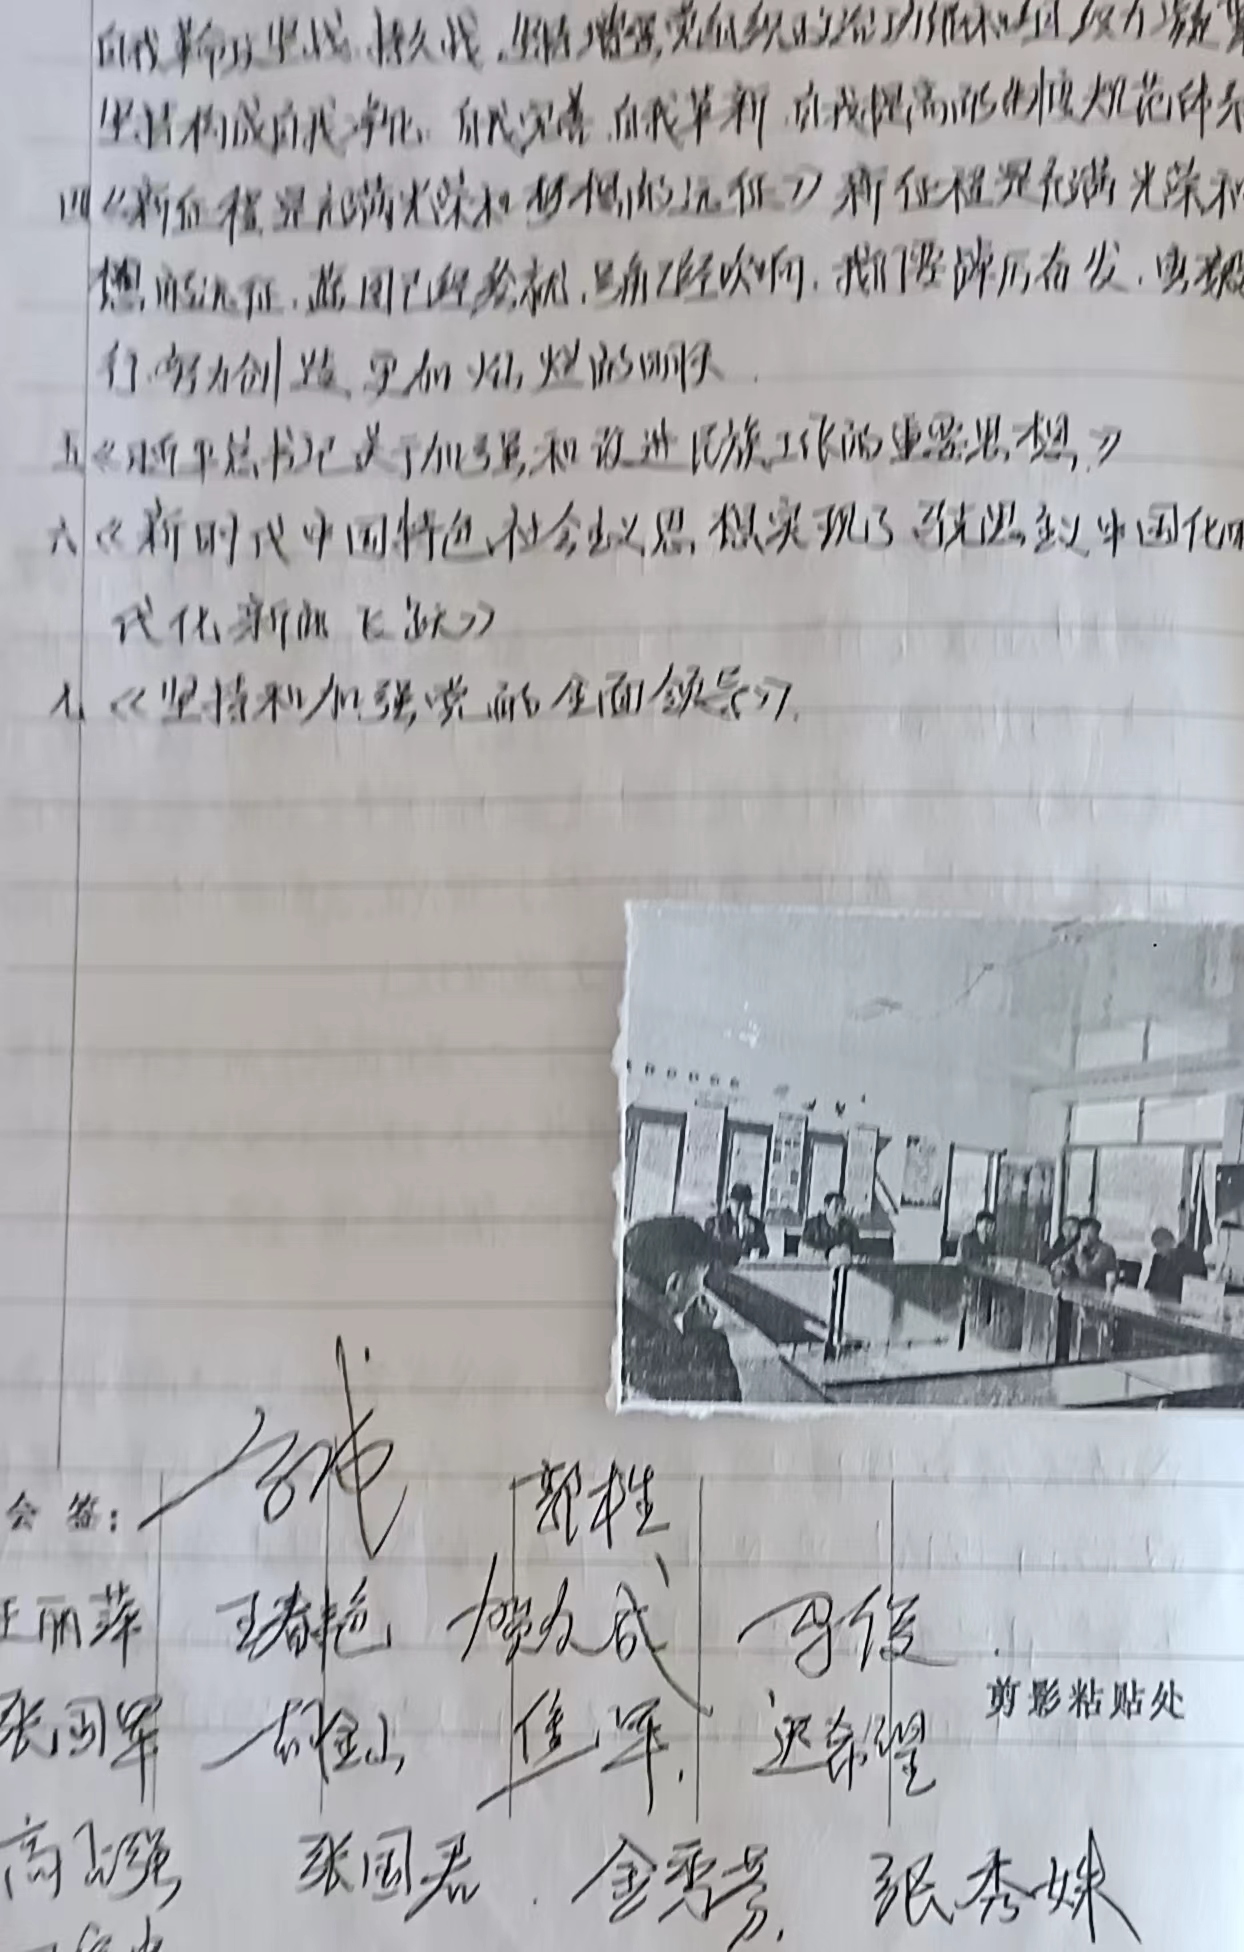 自我革命攻坚战、持久战,坚持增强党组织的政治功能和组织力凝聚
坚持构成自我净化、自我完善、自我革新、自我提高的制度规范体系
四《新征程是充满光荣和梦想的远征》新征程是充满光荣和
想的远征,蓝图已经绘就,号角已经吹响,我们要踔厉奋发,勇毅
行,努力创造更加灿烂的明天.
五《习近平总书记关于加强和改进民族工作的重要思想》
六《新时代中国特色社会主义思想实现了马克思主义中国化时
代化新的飞跃》
七《坚持和加强党的全面领导》.
会签: 郭桂
王丽萍 王春艳 贺久成 马俊
剪影粘贴处
张国军 金山 佳军 迟希望
高 强 张国君 金秀芳 张秀妹